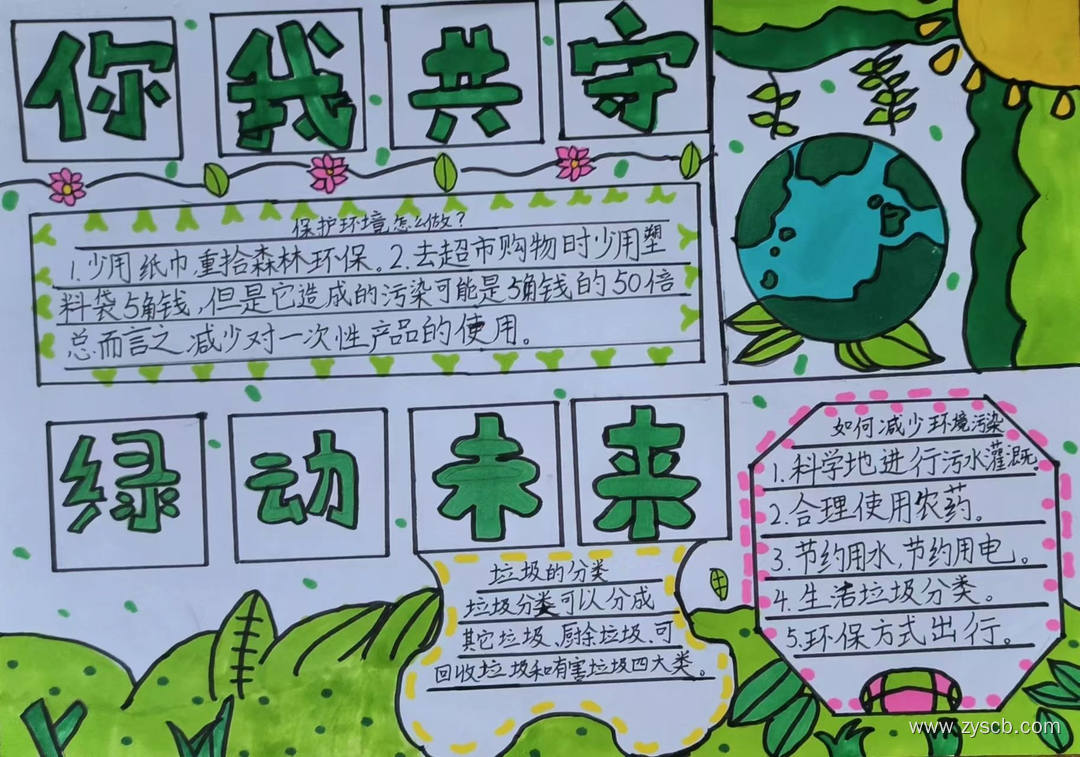 你我共守
保护环境怎么做?
1.少用纸巾,重拾森林环保。2.去超市购物时少用塑
料袋5角钱,但是它造成的污染可能是5角钱的50倍
总而言之,减少对一次性产品的使用。
绿动未来
垃圾的分类
垃圾分类可以分成
其它垃圾、厨余垃圾、可
回收垃圾和有害垃圾四大类。
如何减少环境污染
1.科学地进行污水灌溉。
2.合理使用农药。
3.节约用水,节约用电。
4.生活垃圾分类。
5.环保方式出行。
www.zyscb.com